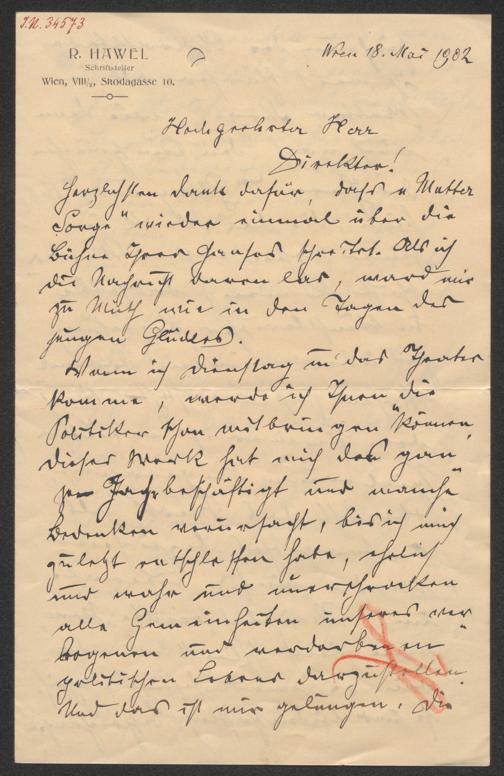 I.N. 34573
R. HAWEL
Schriftsteller
Wien, VIII/2, Skodagasse 10.
Wien 18. Mai 1902
Hochgeehrter Herr
Direktor!
Herzlichsten Dank dafür, dass „Mutter
Sorge“ wieder einmal über die
Bühne Ihres Hauses schreitet. Als ich
die Nachricht davon las, ward mir
zu Muth wie in den Tagen des
jungen Glückes.
Wenn ich Dienstag in das Theater
komme, werde ich Ihnen die
Politiker schon mitbringen können.
Dieses Werk hat mich das gan
ze Jahr beschäftigt und manche
Bedenken verursacht, bis ich mich
zuletzt entschlossen habe, ehrlich
und wahr und unerschrocken
alle Gemeinheiten unseres ver
logenen und verdorbenen
politischen Lebens darzustellen.
Und das ist mir gelungen. Die